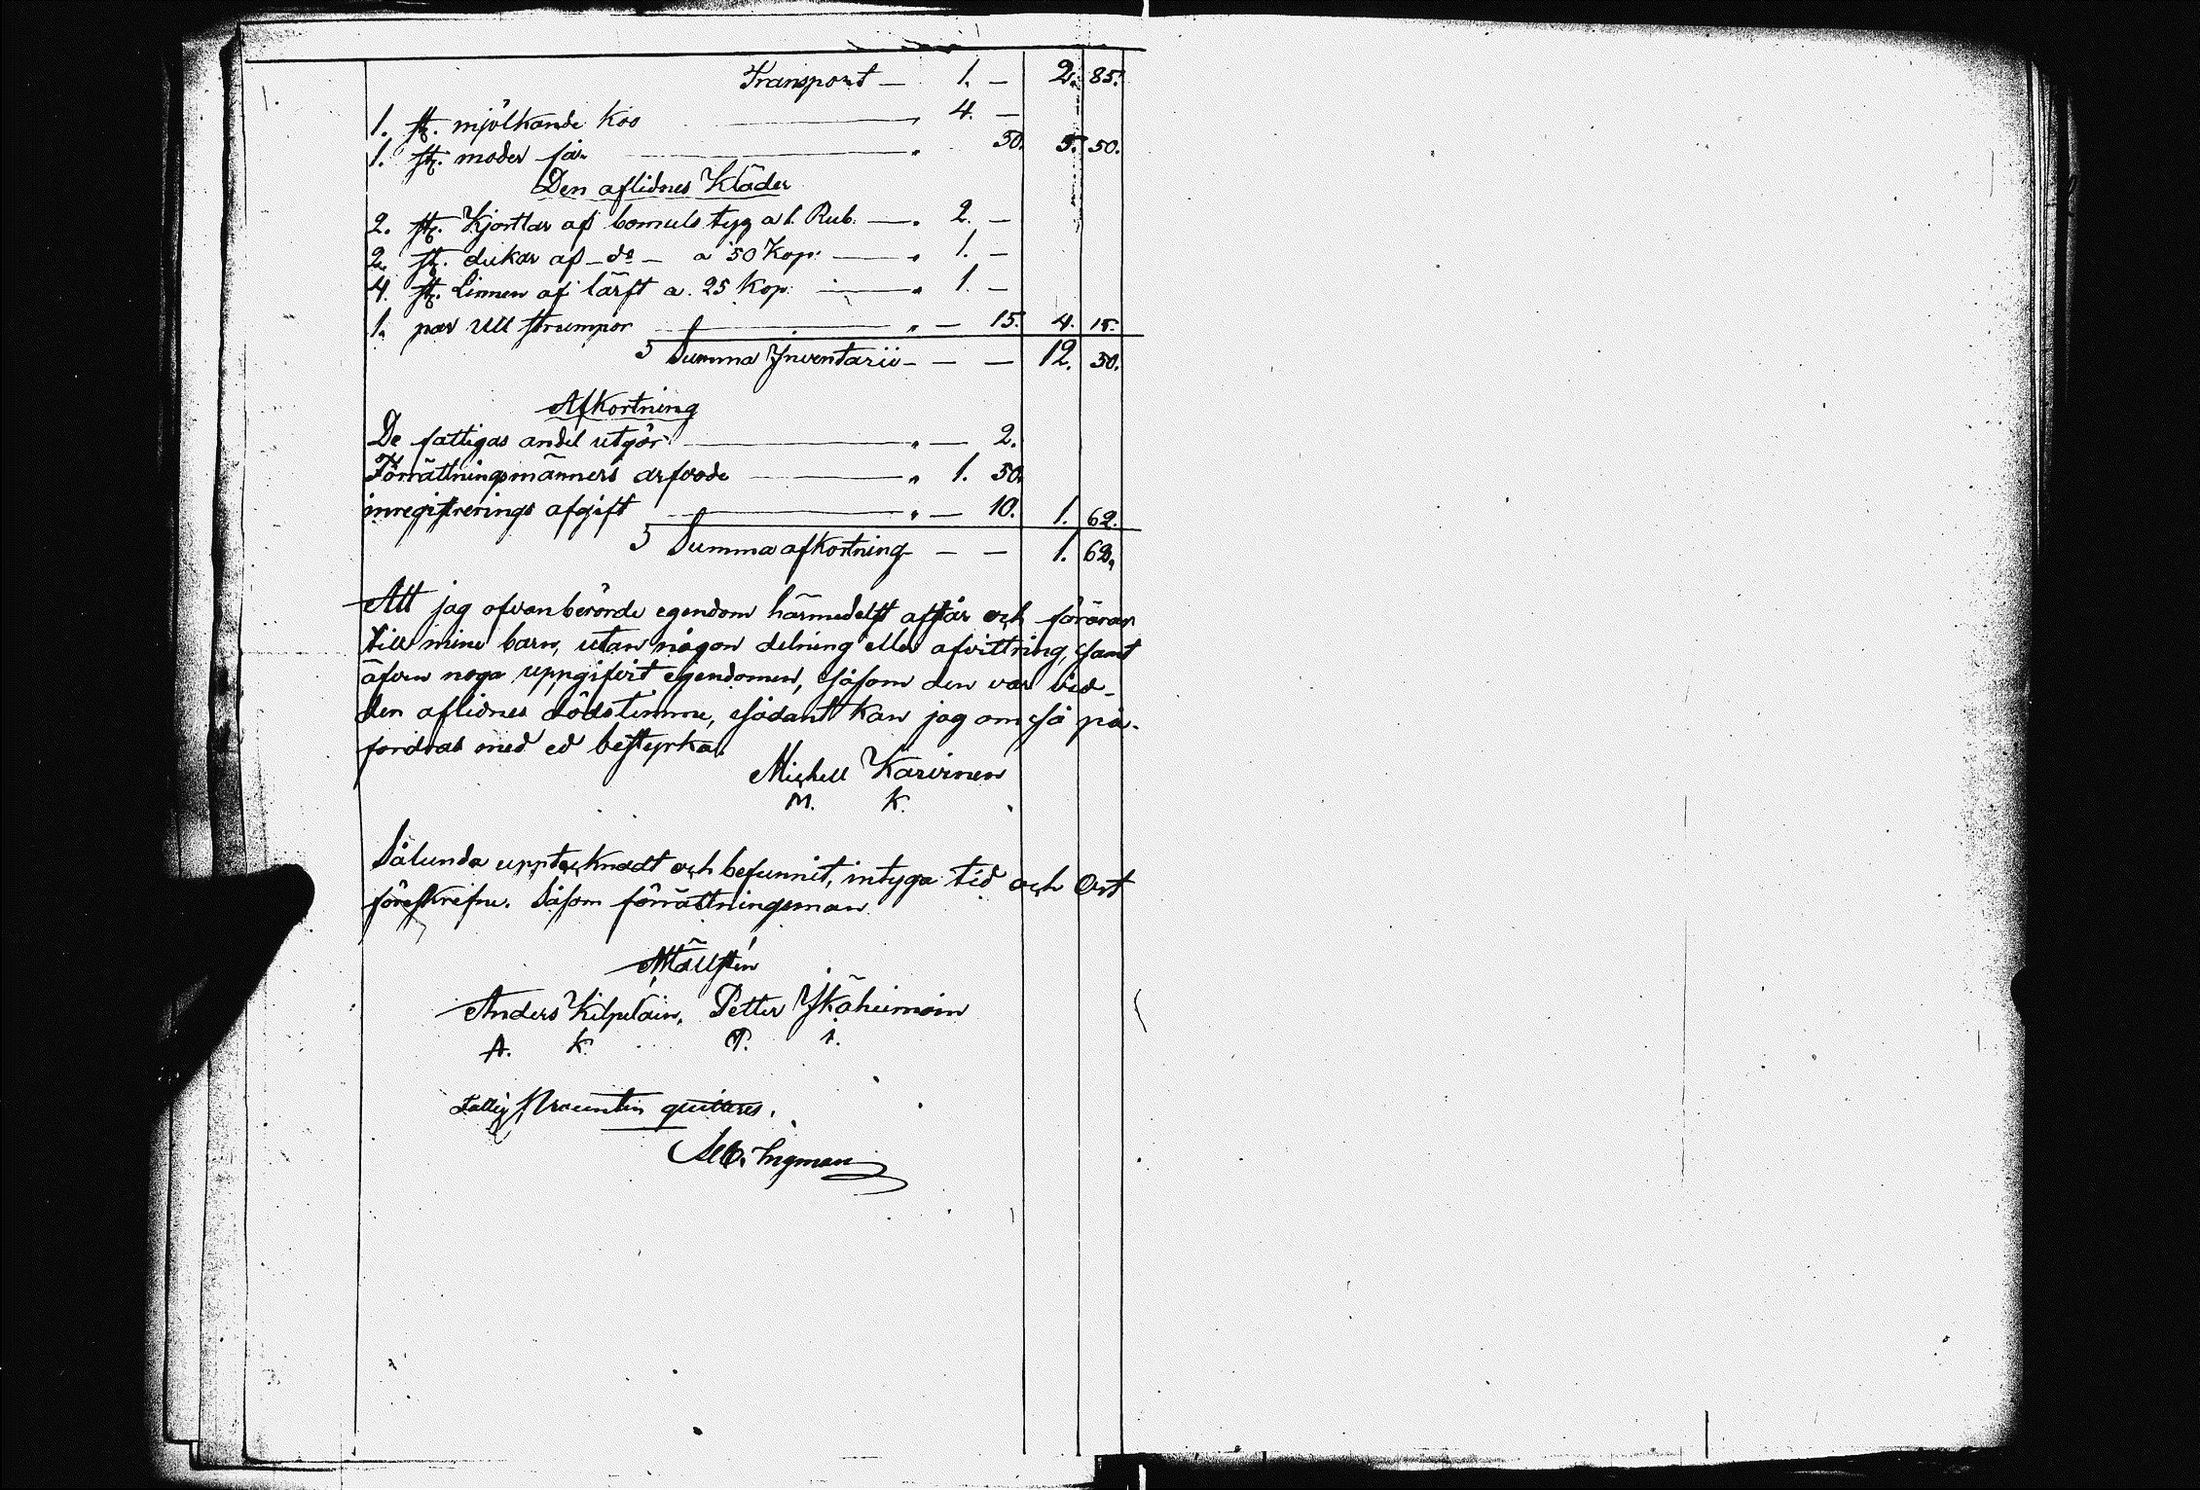 Transport — 1. — 2. 85.
1. st. mjölkande Koo — " 4. —
1. st. moder får — " 50. 5. 50.
Den aflidnes Kläder
2. st. Kjortlar af bomuls tyg a 1. Rub. — " 2. —
2. st. dukar af — do — a 50 Kop. — " 1. —
4. st. Linnen af lärft a. 25 Kop. — " 1. —
1. par Ull strumpor — " — 15. 4. 15.
Summa Inventarii — — — 12. 50.
Afkortning
De fattigas andel utgör — " — 2.
Förrättningsmänners arfvode — " 1. 50.
inregistrerings afgift — " — 10. 1. 62.
Summa afkortning — — 1. 62.
Att jag ofvanberörde egendom härmedelst afstår och förärar
till mine barn, utan någon delning eller afvittring, samt
äfven noga uppgifvit egendomen, såsom den var vid
den aflidnes dödstimme, sådant kan jag om så på-
fordras med ed bestyrka.
Michell Karvinen
M. K.
Sålunda upptecknadt och befunnit, intyga tid och Ort
föreskrefne. Såsom förrättningsman
Anders Kilpeläin, Petter Ikäheimoin
A. K. P. I.
Fattig Procenten quitteres.
Ingman